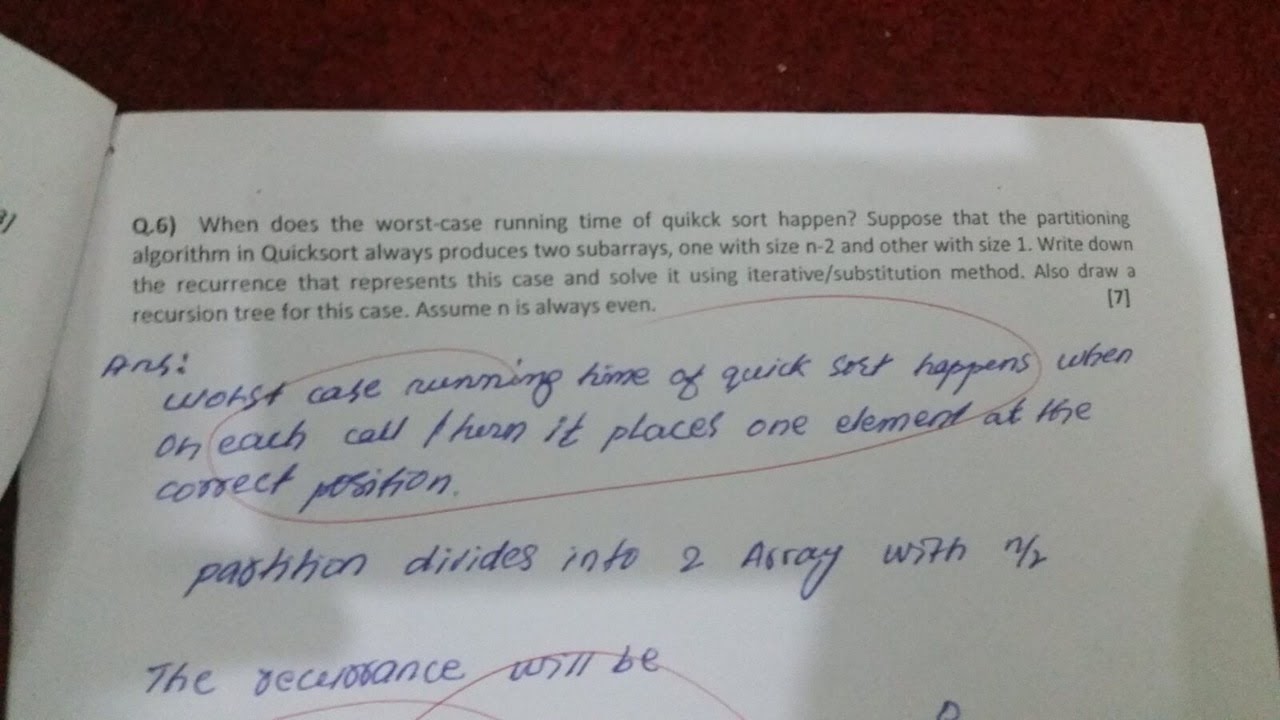 Q.6) When does the worst-case running time of quikck sort happen? Suppose that the partitioning
algorithm in Quicksort always produces two subarrays, one with size n-2 and other with size 1. Write down
the recurrence that represents this case and solve it using iterative/substitution method. Also draw a
recursion tree for this case. Assume n is always even. [7]
Ans:
worst case running time of quick sort happens when
on each call / turn it places one element at the
correct position.
partition divides into 2 Array with n/2
The recurrance will be